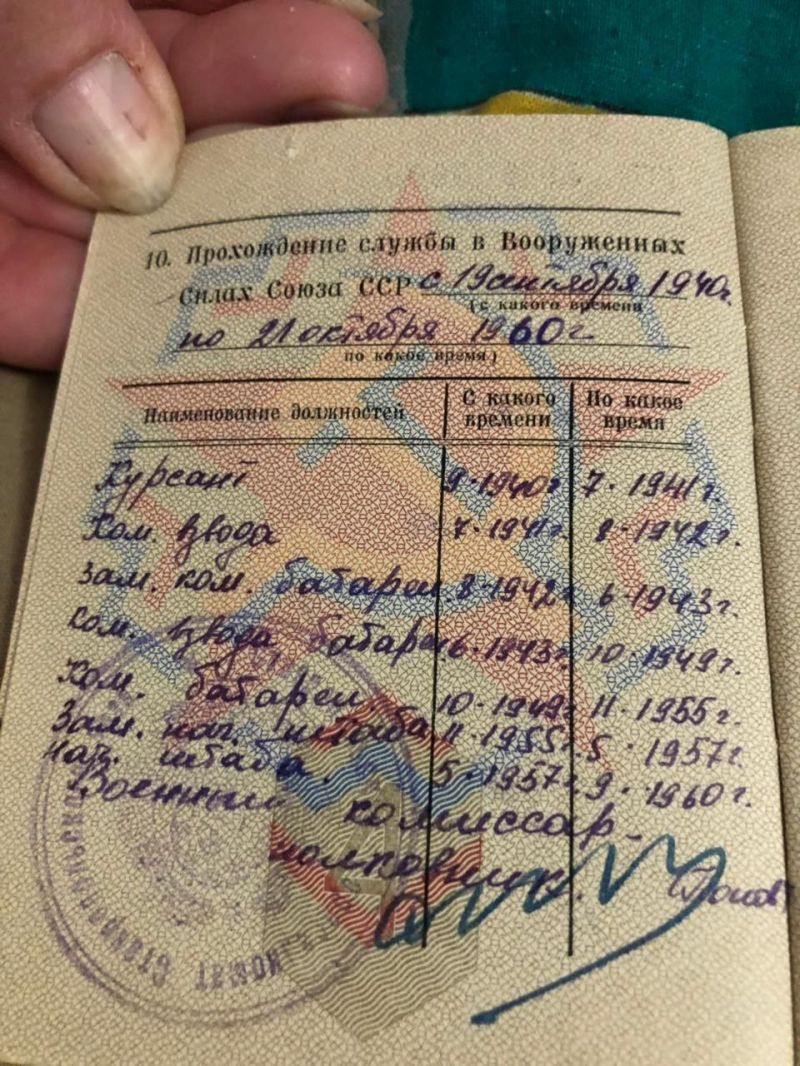 10. Прохождение службы в Вооруженных
Силах Союза ССР с 19 сентября 1940г.
(с какого времени
по 21 октября 1960 г.
по какое время)
Наименование должностей
С какого времени
По какое время
Курсант 9.1940г. 7.1941г.
Ком. взвода 7.1941г. 8.1942г.
Зам. ком. батареи 8.1942г. 6.1943г.
Ком. взвода батареи 6.1943г. 10.1949г.
Ком. батареи. 10.1949г. 11.1955г.
Зам. нач. штаба 11.1955г. 5.1957г.
нач. штаба. 5.1957г. 9.1960г.
Военный комиссар-
полковник.